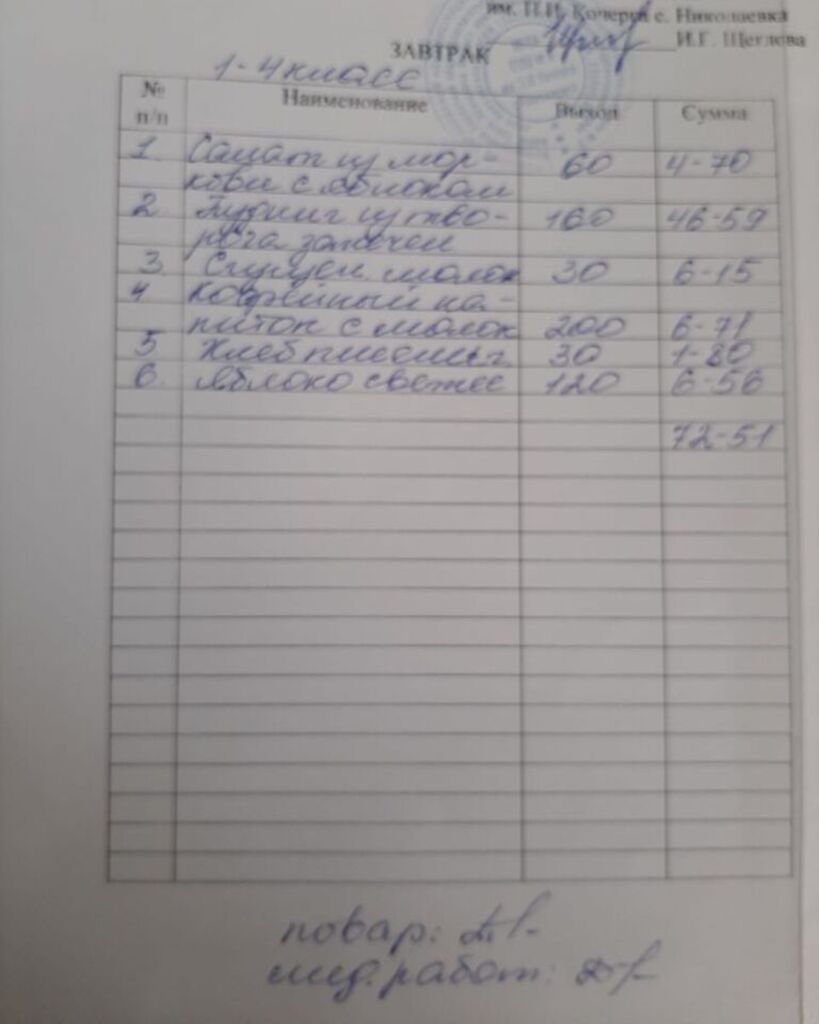 им. П.И. Кочерги с. Николаевка
И.Г. Щеглова
ЗАВТРАК
1-4 класс
№ п/п Наименование Выход Сумма
1 Салат из мор- 60 4-70
кови с яблоком
2 Пудинг из тво- 160 46-59
рога запечен
3 Сгущен. молок 30 6-15
4 Кофейный на-
питок с молок 200 6-71
5 Хлеб пшенич. 30 1-80
6. Яблоко свежее 120 6-56
72-51
повар:
мед. работ: